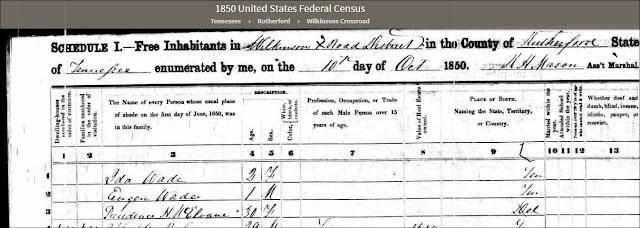 1850 United States Federal Census
Tennessee > Rutherford > Wilkinsons Crossroad
SCHEDULE I.—Free Inhabitants in Wilkinson X Road District in the County of Rutherford State
of Tennessee enumerated by me, on the 10th day of Oct 1850. Mason Ass't Marshal.
Dwelling-houses numbered in the order of visitation.
Families numbered in the order of visitation.
The Name of every Person whose usual place of abode on the first day of June, 1850, was in this family.
DESCRIPTION.
Age.
Sex.
Color,
Profession, Occupation, or Trade of each Male Person over 15 years of age.
Value of Real Estate owned.
PLACE OF BIRTH.
Naming the State, Territory, or Country.
Married within the year.
Whether deaf and dumb, blind, insane, idiotic, pauper, or convict.
1 2 3 4 5 6 7 8 9 10 11 12 13
1 Ida Wade 2 F Ten
2 Eugen Wade 1 M Ten
3 Prudence H McElvane 30 F Del